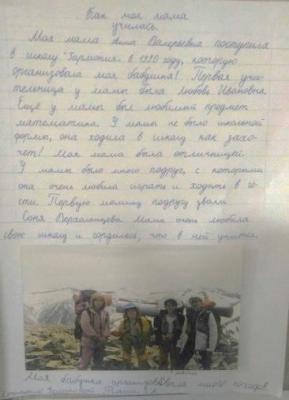 Как моя мама
училась.
Моя мама Анна Валерьевна поступила
в школу "Гармония" в 1990 году, которую
организовала моя бабушка! Первая учи-
тельница у мамы была Любовь Ивановна
Ещё у мамы был любимый предмет
математика. У мамы не было школьной
формы, она ходила в школу как захо-
чет! Моя мама была отличницей.
У мамы было много подруг, с которыми
она очень любила играть и ходить в го-
сти. Первую мамину подругу звали
Соня Мама очень любила
свою школу и гордилась, что в ней училась.
Моя бабушка организовывала много походов.